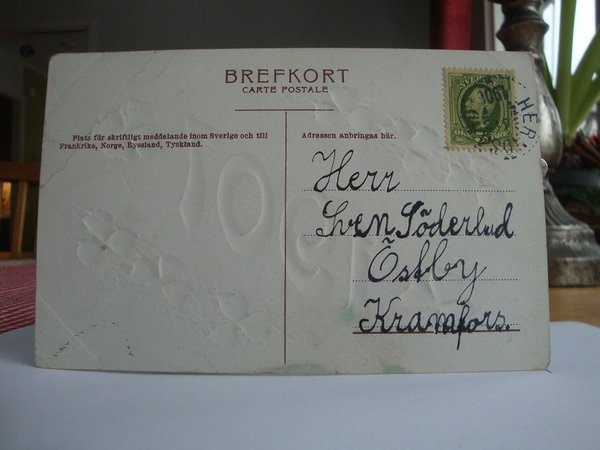 BREFKORT
CARTE POSTALE
Plats för skriftligt meddelande inom Sverige och till
Frankrike, Norge, Ryssland, Tyskland.
Adressen anbringas här.
SVERIGE
HER
Herr
Sven Söderlud
Östby
Kramfors.